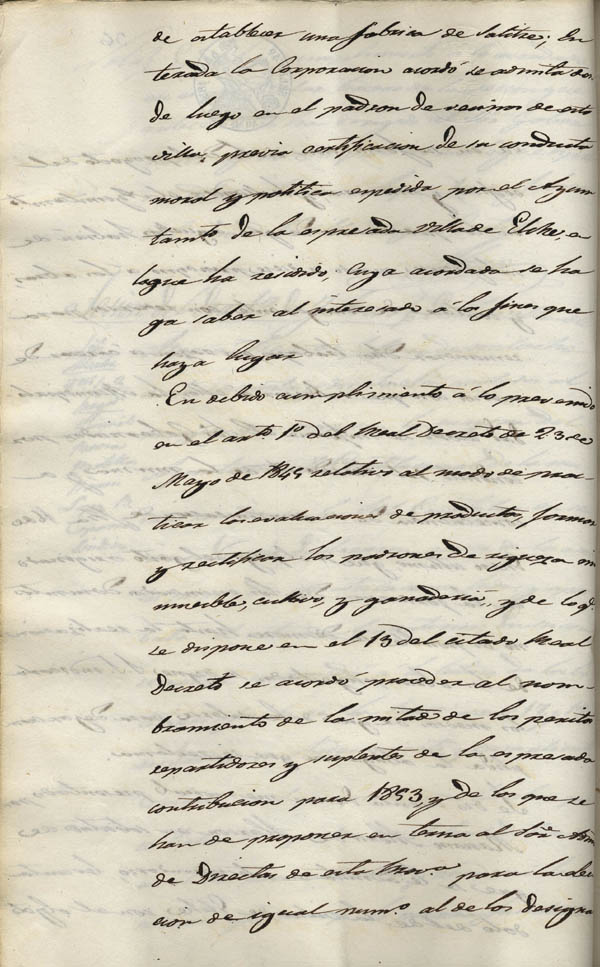 de establecer una fabrica de Salitre; En
terada la Corporacion acordó se admita des
de luego en el padron de vecinos de esta
villa, previa certificacion de su conducta
moral y politica espedida por el Ayun
tamto de la espresada Villa de Elche, en
la que ha residido, Cuya acordada se ha
ga saber al interesado á los fines que
haya lugar
En debido cumplimiento á lo prevenido
en el arto 1o del Real Decreto de 23 de
Mayo de 1845 relativo al modo de prac
ticar las evaluaciones de productos, formar
y rectificar los padrones de riqueza in
mueble, cultivo, y ganaderia, y de lo q.
se dispone en el 13 del citado Real
Decreto se acordó proceder al nom-
bramiento de la mitad de los peritos
repartidores y suplentes de la espresada
contribucion para 1853, y de los que se
han de proponer en terna al Sor. Adm
de Directas de esta Prov.a para la elec
cion de igual num.o al de los designa